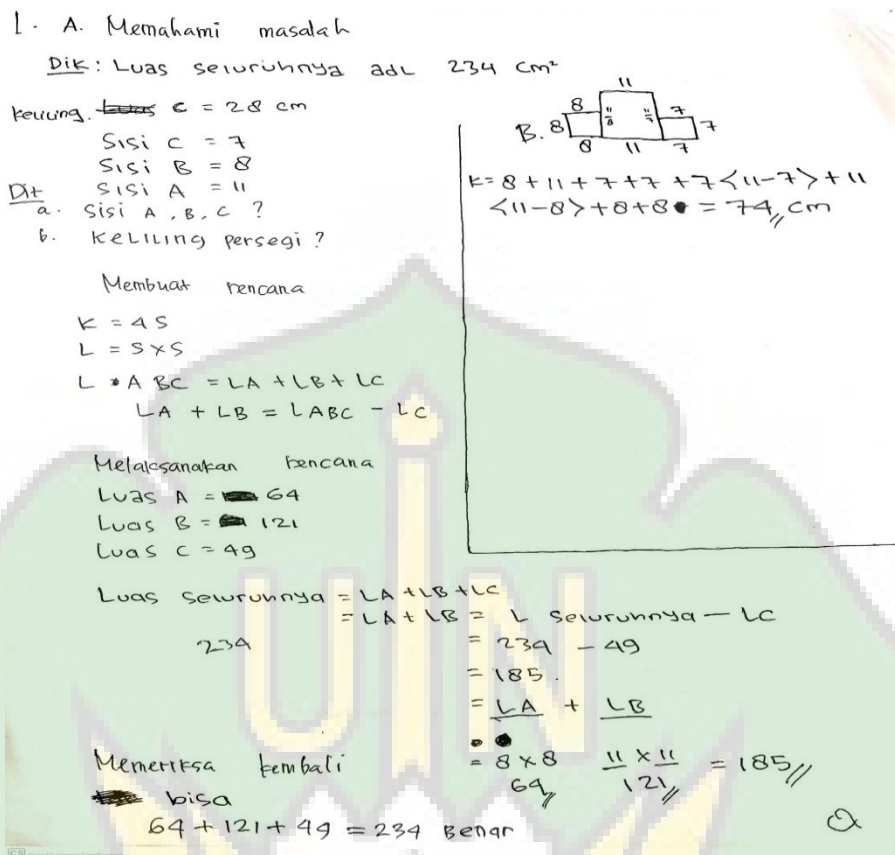 1. A. Memahami masalah
Dik : Luas seluruhnya adl 234 cm²
Keliling. C = 28 cm
Sisi C = 7
Sisi B = 8
Dit Sisi A = 11
a. Sisi A, B, C ?
b. Keliling persegi ?
Membuat rencana
K = 4S
L = S×S
L ABC = LA + LB + LC
LA + LB = LABC - LC
Melaksanakan rencana
Luas A = 64
Luas B = 121
Luas C = 49
Luas seluruhnya = LA + LB + LC
= LA + LB = L seluruhnya - LC
234 = 234 - 49
= 185.
= LA + LB
= 8 × 8 11 × 11 = 185
64 121
Memeriksa kembali
bisa
64 + 121 + 49 = 234 Benar
B.
11
8 11 11 7
8 8 7 7
8 11 7
K = 8 + 11 + 7 + 7 + 7 <11-7> + 11
<11-8> + 8 + 8 = 74 cm
UIN
CS